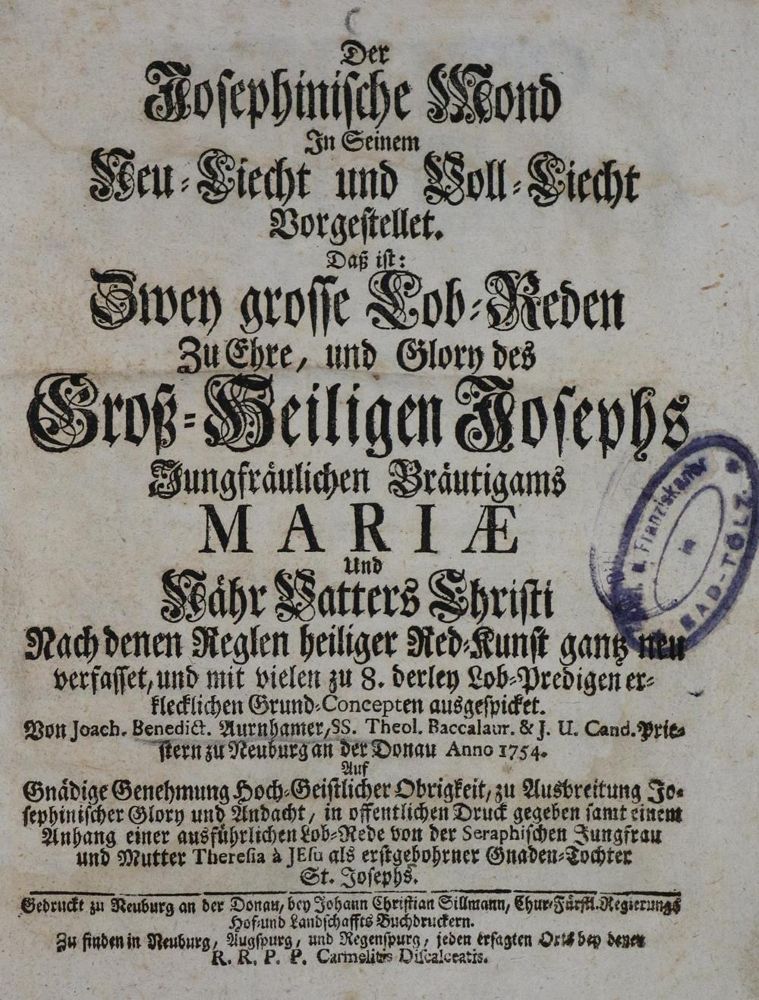 Der
Josephinische Mond
In Seinem
Neu-Liecht und Voll-Liecht
Vorgestellet.
Daß ist:
Zwey grosse Lob-Reden
Zu Ehre, und Glory des
Groß-Heiligen Josephs
Jungfräulichen Bräutigams
MARIÆ
Und
Nähr Vatters Christi
Nach denen Reglen heiliger Red-Kunst gantz neu
verfasset, und mit vielen zu 8. derley Lob-Predigen er-
klecklichen Grund-Concepten ausgespicket.
Von Joach. Benedict. Aurnhamer, SS. Theol. Baccalaur. & J. U. Cand. Prie-
stern zu Neuburg an der Donau Anno 1754.
Auf
Gnädige Genehmung Hoch-Geistlicher Obrigkeit, zu Ausbreitung Jo-
sephinischer Glory und Andacht, in offentlichen Druck gegeben samt einem
Anhang einer ausführlichen Lob-Rede von der Seraphischen Jungfrau
und Mutter Theresia à JEsu als erstgebohrner Gnaden-Tochter
St. Josephs.
Gedruckt zu Neuburg an der Donau, bey Johann Christian Sillmann, Chur-Fürstl. Regierungs
Hof-und Landschaffts Buchdruckern.
Zu finden in Neuburg, Augspurg, und Regenspurg, jeden ersagten Orts bey denen
R. R. P. P. Carmelitis Discalceatis.
a. Franziskaner
in
BAD-TÖLZ